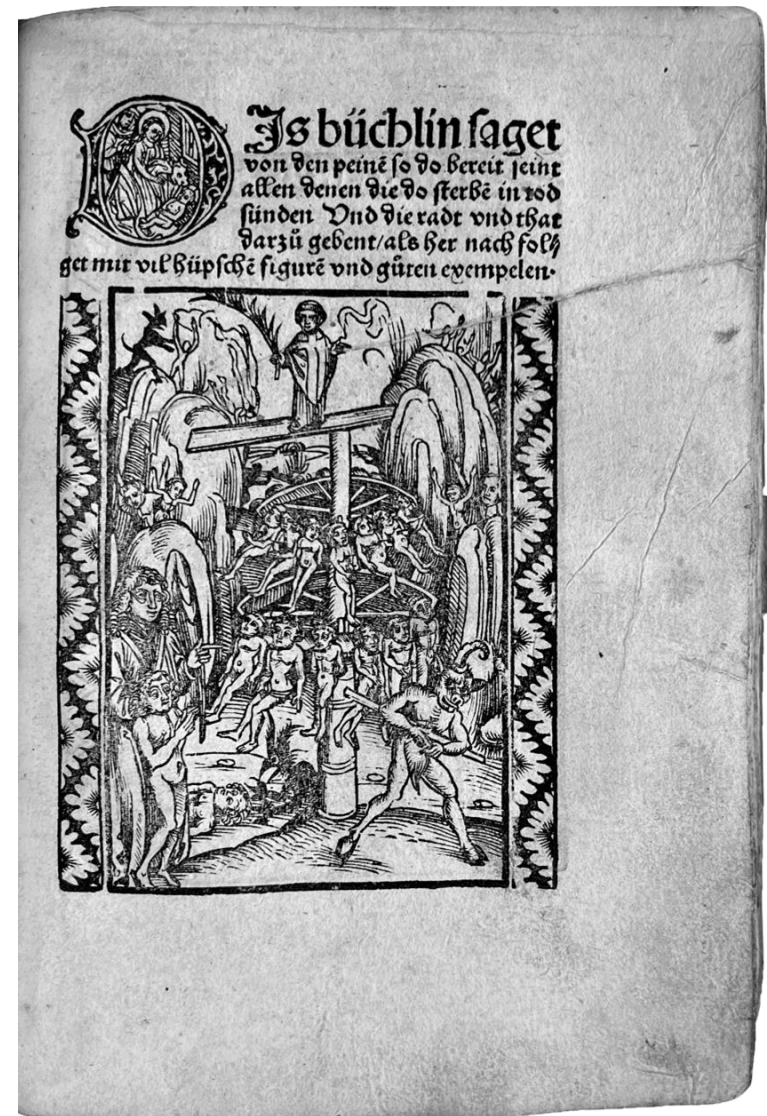 DIs büchlin saget
von den peinē so do bereit seint
allen denen die do sterbē in tod
sünden Vnd die radt vnd that
darzů gebent/als her nach fol⸗
get mit vil hüpschē figurē vnd gůten exempelen.